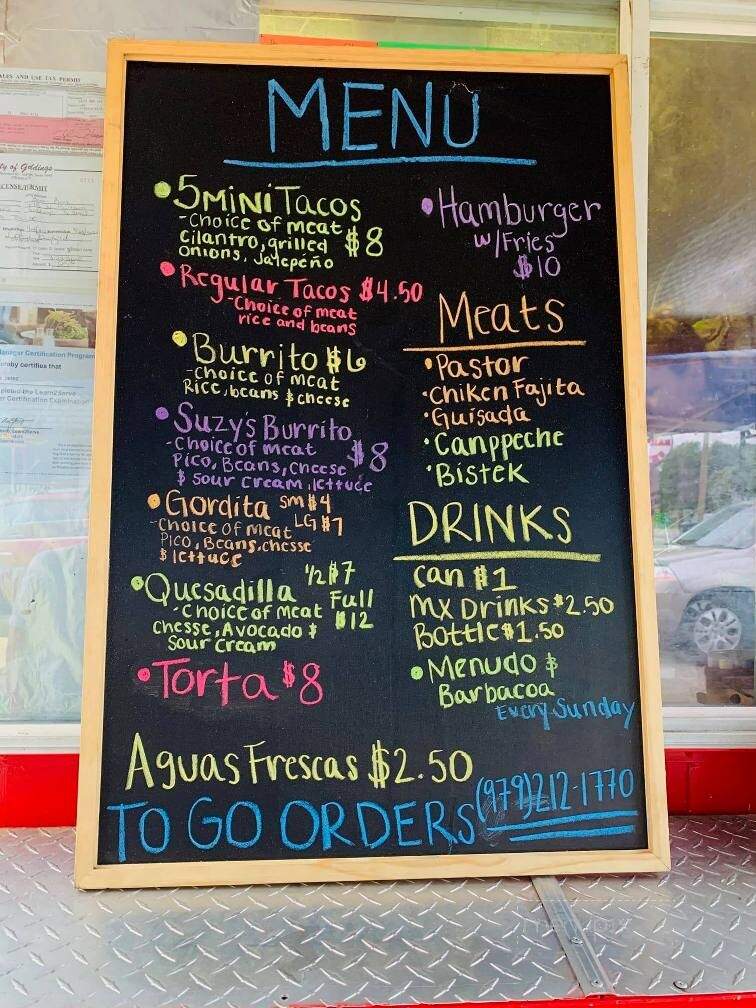 MENU
• 5 Mini Tacos
- Choice of meat
Cilantro, grilled
Onions, Jalepeño
$8
• Regular Tacos $4.50
- Choice of meat
rice and beans
• Burrito $6
- Choice of meat
Rice, beans $ cheese
• Suzy's Burrito
- Choice of meat
Pico, Beans, cheese
$ sour cream, lettuce
$8
• Gordita SM $4
LG $7
- Choice of meat
Pico, Beans, chesse
$ lettuce
• Quesadilla 1/2 $7
Full
$12
- Choice of meat
Chesse, Avocado $
Sour Cream
• Torta $8
• Hamburger
w/Fries
$10
Meats
• Pastor
• Chiken Fajita
• Guisada
• Canppeche
• Bistek
DRINKS
can $1
MX Drinks $2.50
Bottle $1.50
• Menudo $
Barbacoa
Every Sunday
Aguas Frescas $2.50
TO GO ORDERS (979)212-1770
SALES AND USE TAX PERMIT
City of Giddings
Manager Certification Program